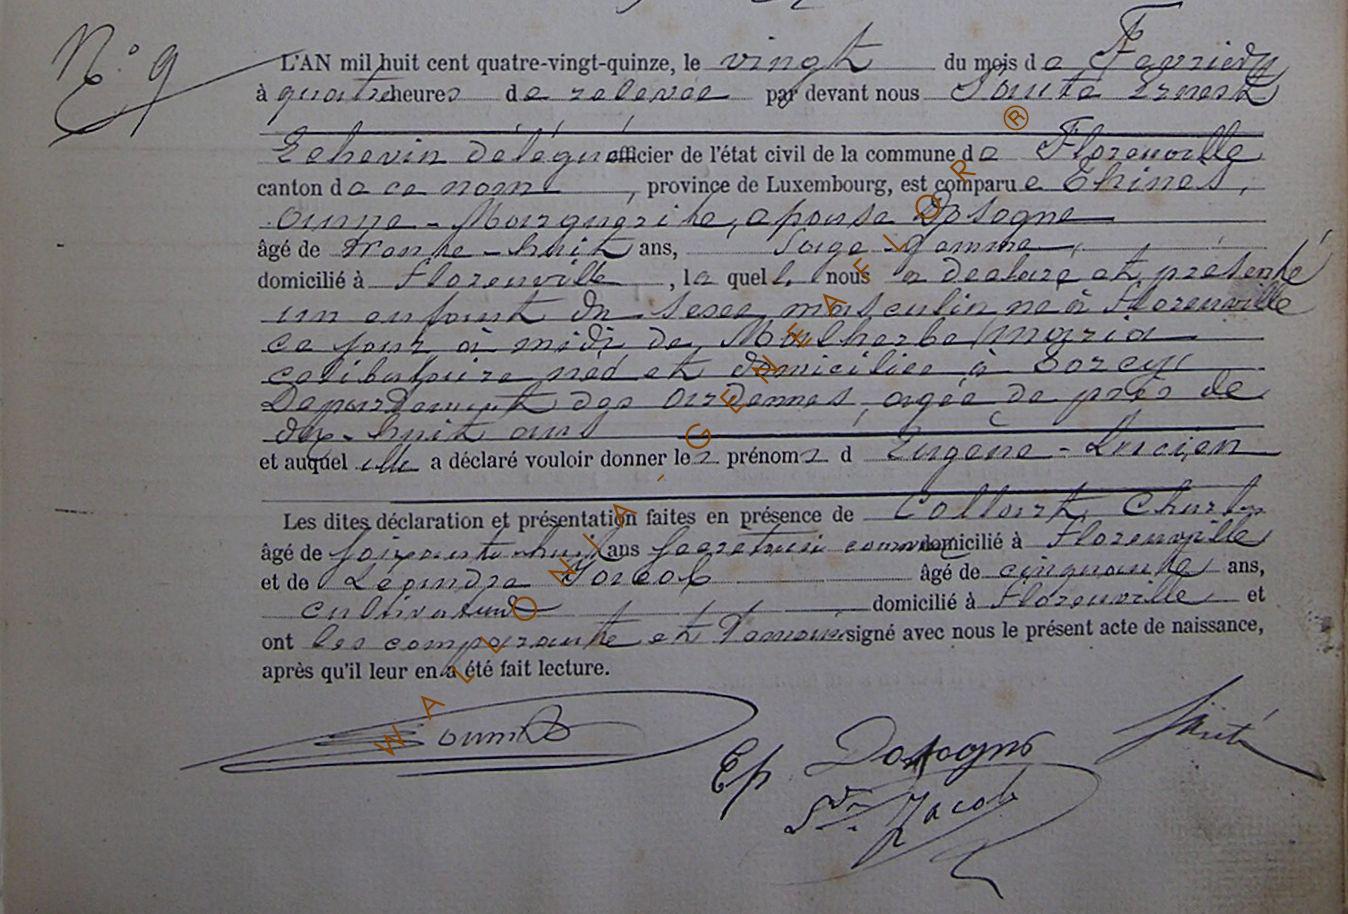 N° 9
L'AN mil huit cent quatre-vingt-quinze, le vingt du mois de Fevrier
à quatre heures de relevée par devant nous Santé Ernest
Echevin délégué officier de l'état civil de la commune de Florenville
canton de ce nom, province de Luxembourg, est comparue Thines,
Anne-Marguerite, épouse Dosogne
âgé de trente-huit ans, Sage-femme,
domicilié à Florenville, laquelle nous a declaré et présenté
un enfant du sexe masculin né à Florenville
ce jour à midi de Malherbe Maria
celibataire née et domiciliée à
Departement des Ardennes, agée de près de
dix-huit ans
et auquel elle a déclaré vouloir donner les prénoms d Eugène-Lucien
Les dites déclaration et présentation faites en présence de Collart, Charles
âgé de soixante-huit ans secretaire communal domicilié à Florenville
et de Lépindre Jacob âgé de cinquante ans,
cultivateur domicilié à Florenville et
ont les comparante et témoins signé avec nous le présent acte de naissance,
après qu'il leur en a été fait lecture.
Ep Dosogne
Santé
Jacob
WALLONIA.GENEAFLOR ®